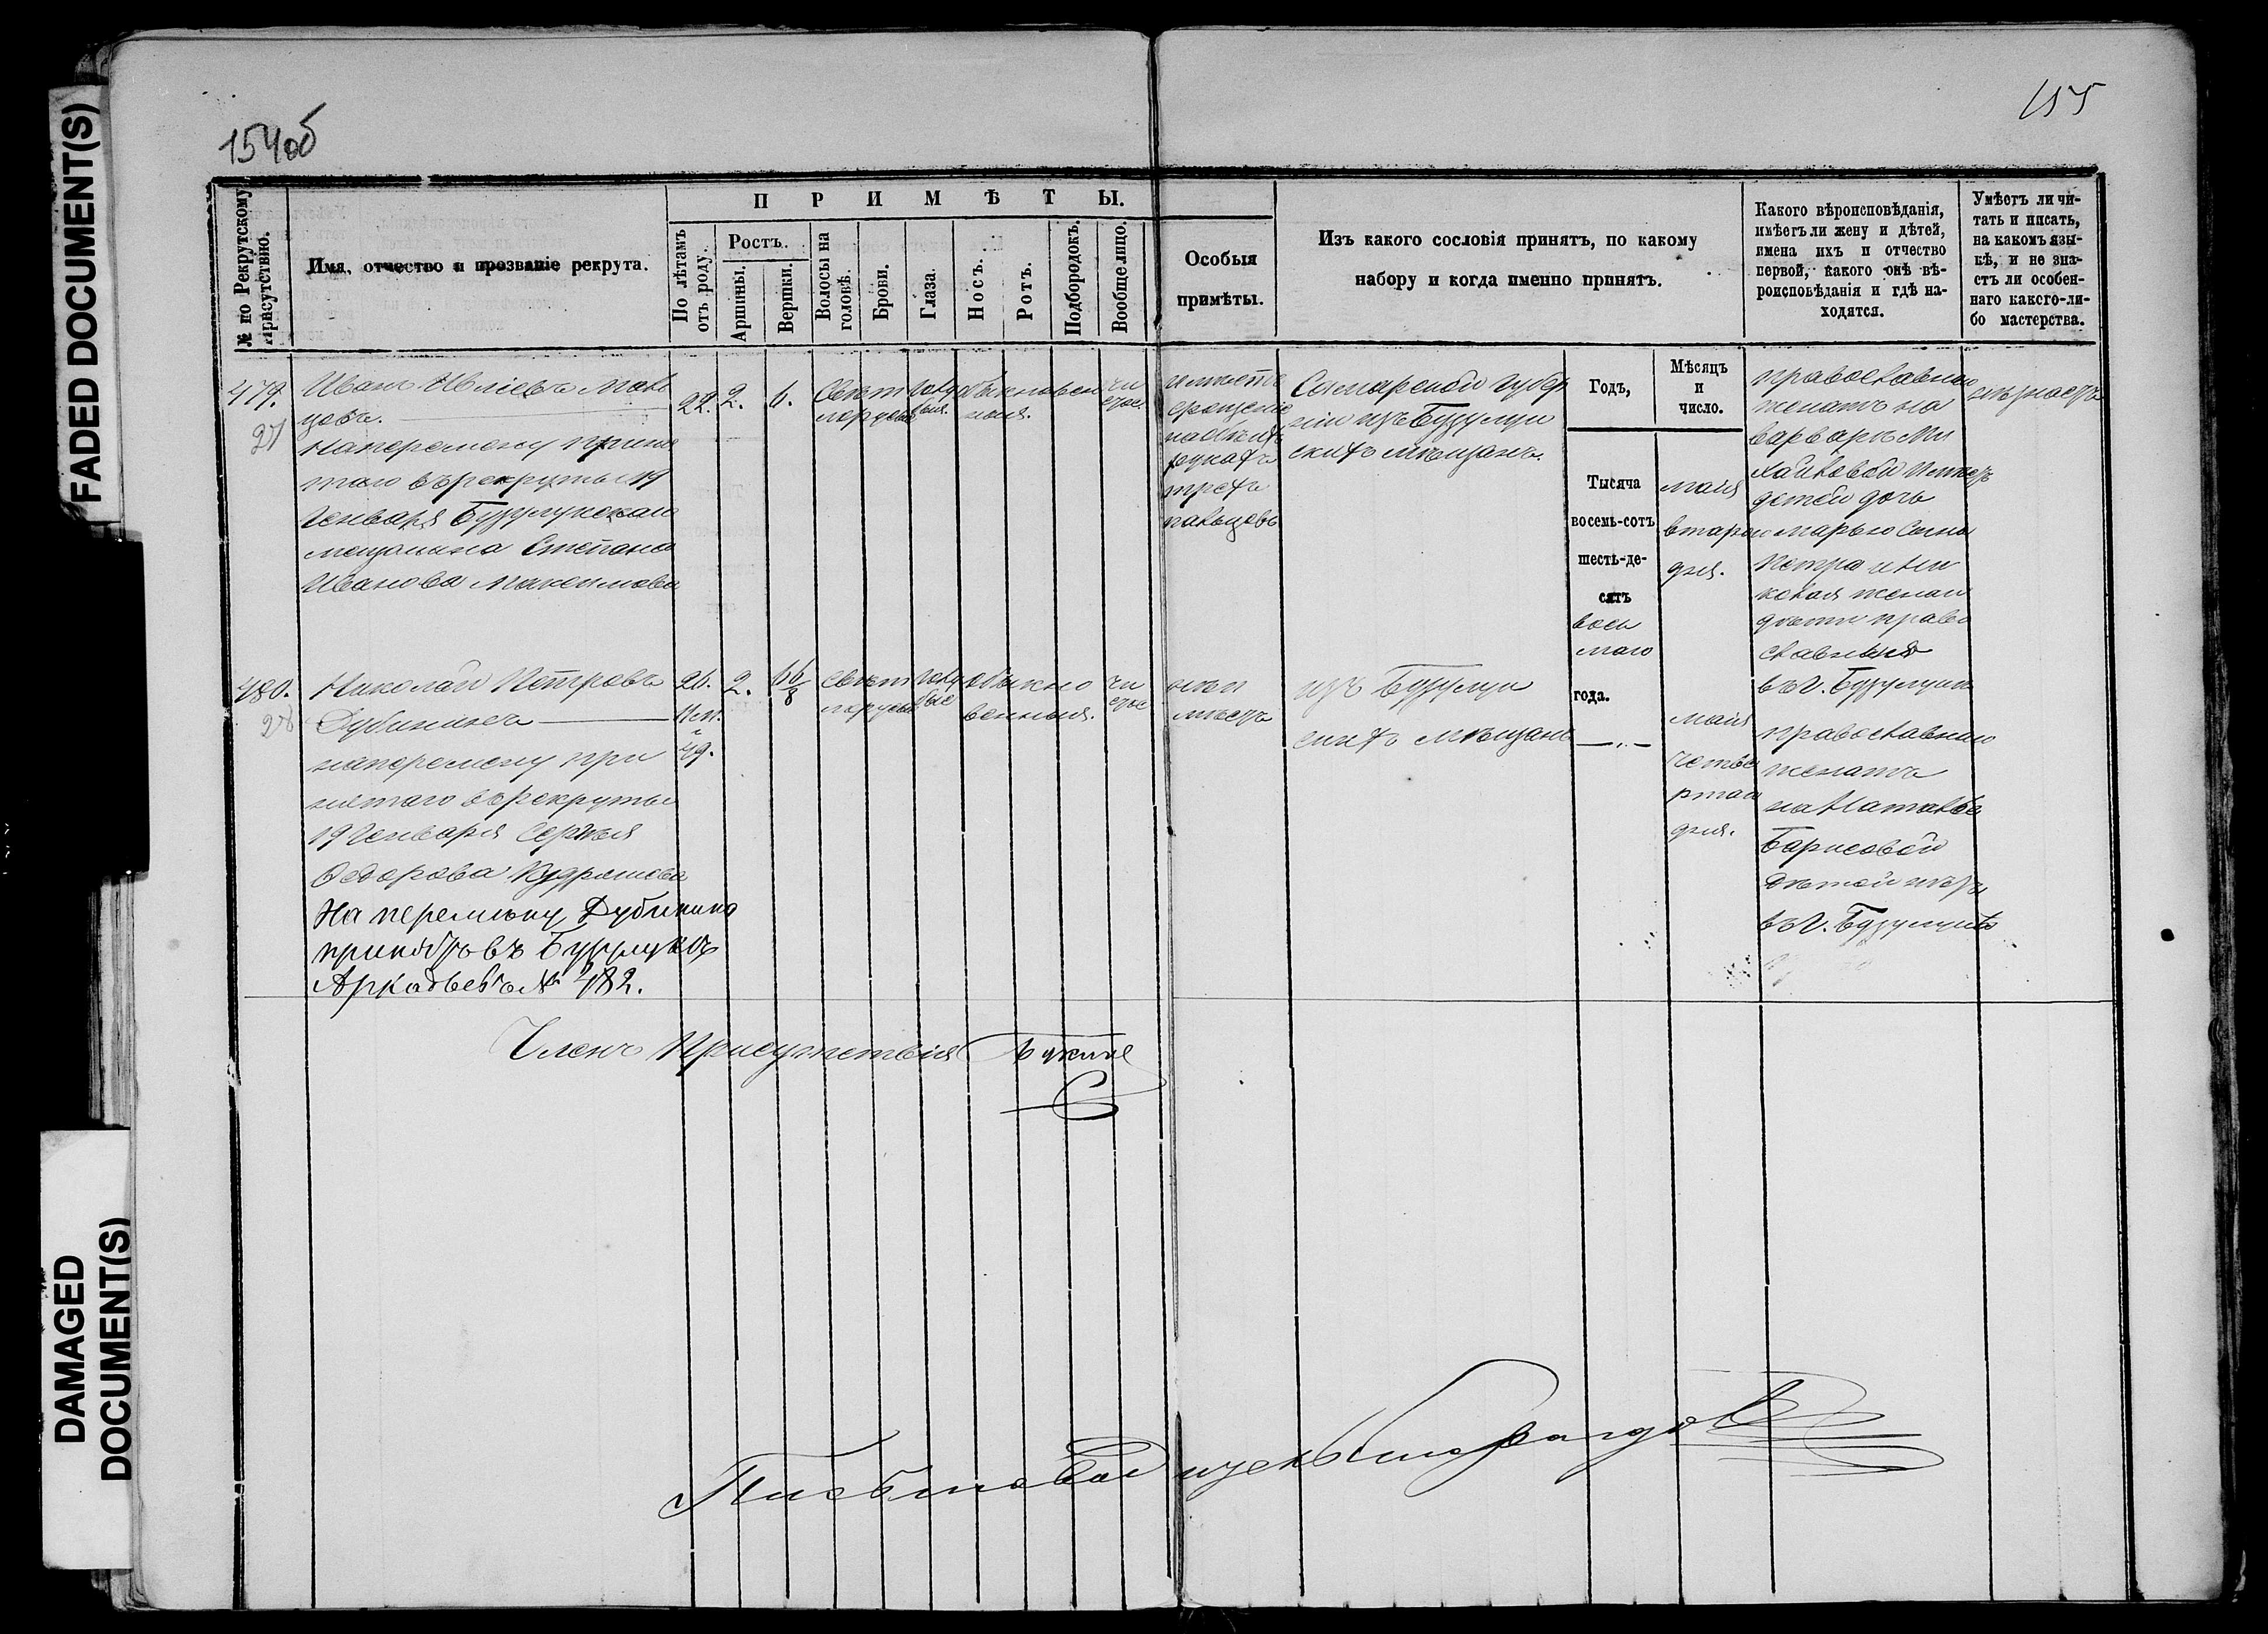 FADED DOCUMENT(S)
DAMAGED
DOCUMENT(S)
154об
155
№ по Рекрутскому присутствію.
Имя, отчество и прозваніе рекрута.
ПРИМѢТЫ.
По лѣтамъ отъ роду.
Ростъ.
Аршины.
Вершки.
Волосы на головѣ.
Брови.
Глаза.
Носъ.
Ротъ.
Подбородокъ.
Вообще лицо.
Особыя
примѣты.
Изъ какого сословія принятъ, по какому
набору и когда именно принятъ.
Какого вѣроисповѣданія,
имѣетъ ли жену и дѣтей,
имена ихъ и отчество
первой, какого онѣ вѣ-
роисповѣданія и гдѣ на-
ходятся.
Умѣетъ ли чи-
тать и писать,
на какомъ язы-
кѣ, и не зна-
етъ ли особен-
наго какого-ли-
бо мастерства.
Годъ,
Мѣсяцъ
и
число.
479.
27
Иванъ
цовъ.
наперемену приня
таго врекруты 19
Генваря Бузулускаго
мещанина Степана
Иванова Максимова
22.
2.
6.
Свѣт
лорусые
голу
бые
обыкновен
ныя.
чи
стое
сращеніе
рукахъ
трехъ
пальцовъ
Самарской губер
ніи изъ Бузулук
скихъ мѣщанъ.
Тысяча
восемь-сотъ
шесть-де-
сятъ
вось
маго
года.
маія
втараго
дня.
православнаго
женатъ на
Варварѣ Ми
хайловой имѣетъ
детей дочь
Марью сына
Петра
жена и
дѣти право
славныя
въ г. Бузулуке
незнаетъ
480.
28
Николай Петровъ
Дубининъ
наперемену при
нятаго врекруты
19 Генваря Сергѣя
Ѳедорова Кудряшова
На перемѣну Дубинина
принятъ въ Бузулукѣ
Аркадьевъ № 482.
26.
49.
2.
6 6/8
свѣт
лорусые
голу
бые
обыкно
венныя.
чи
стое
неи
мѣетъ
изъ Бузулук
скихъ мѣщанъ
— „ —
маія
четве
ртаго
дня.
православнаго
женатъ
на Натальѣ
Барисовой
дѣтей нетъ
въ г. Бузулуке
Членъ Присутствія